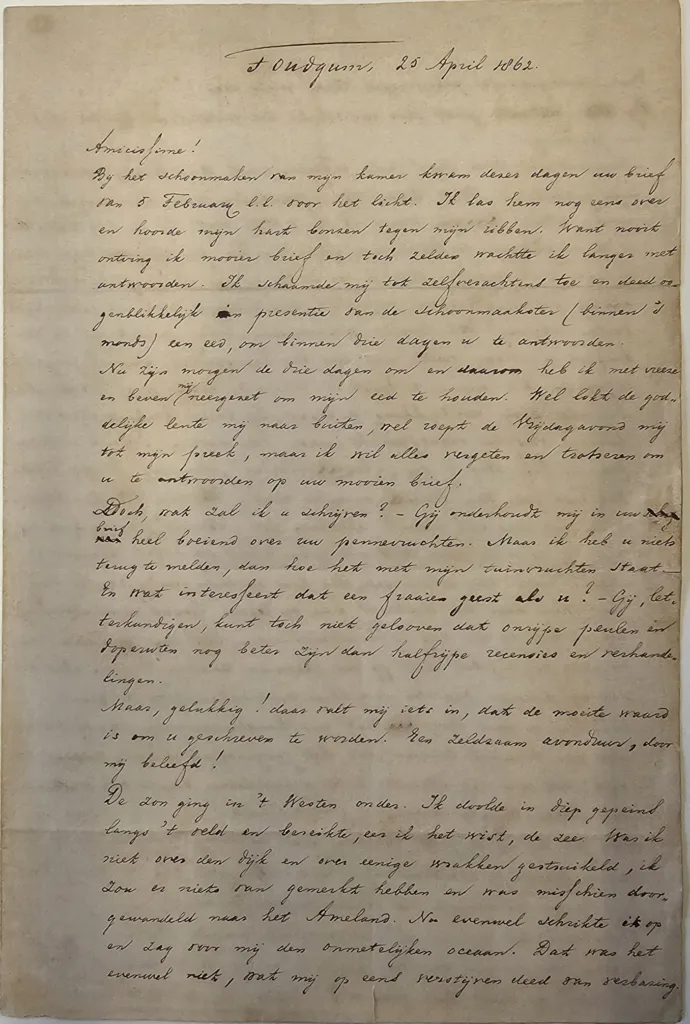 Foudgum, 25 April 1862.
Amicissime!
Bij het schoonmaken van mijn kamer kwam dezer dagen uw brief
van 5 February l.l. voor het licht. Ik las hem nog eens over
en hoorde mijn hart bonzen tegen mijn ribben. Want nooit
ontving ik mooier brief en toch zelden wachtte ik langer met
antwoorden. Ik schaamde mij tot zelfverachtens toe en deed oo-
genblikkelijk in presentie van de schoonmaakster (binnen 's
monds) een eed, om binnen drie dagen u te antwoorden.
Nu zijn morgen de drie dagen om en daarom heb ik met vreeze
en beven mij neergezet om mijn eed te houden. Wel lokt de god-
delijke lente mij naar buiten, wel roept de Vrijdagavond mij
tot mijn preek, maar ik wil alles vergeten en trotseren om
u te antwoorden op uw mooien brief.
Doch, wat zal ik u schrijven? - Gij onderhoudt mij in uw
brief heel boeiend over uw pennevruchten. Maar ik heb u niets
terug te melden, dan hoe het met mijn tuinvruchten staat -
En wat interesseert dat een fraaien geest als u? - Gij, let-
terkundigen, kunt toch niet gelooven dat onrijpe peulen en
doperwten nog beter zijn dan halfrijpe recensies en verhande-
lingen.
Maar, gelukkig! daar valt mij iets in, dat de moeite waard
is om u geschreven te worden. Een zeldzaam avondtuur, door
mij beleefd!
De zon ging in 't Westen onder. Ik doolde in diep gepeins
langs 't veld en bereikte, eer ik het wist, de zee. Was ik
niet over den dijk en over eenige wrakken gestruikeld, ik
zou er niets van gemerkt hebben en was misschien door-
gewandeld naar het Ameland. Nu evenwel schrikte ik op
en zag voor mij den onmetelijken oceaan. Dat was het
evenwel niet, wat mij op eens verstijven deed van verbazing.